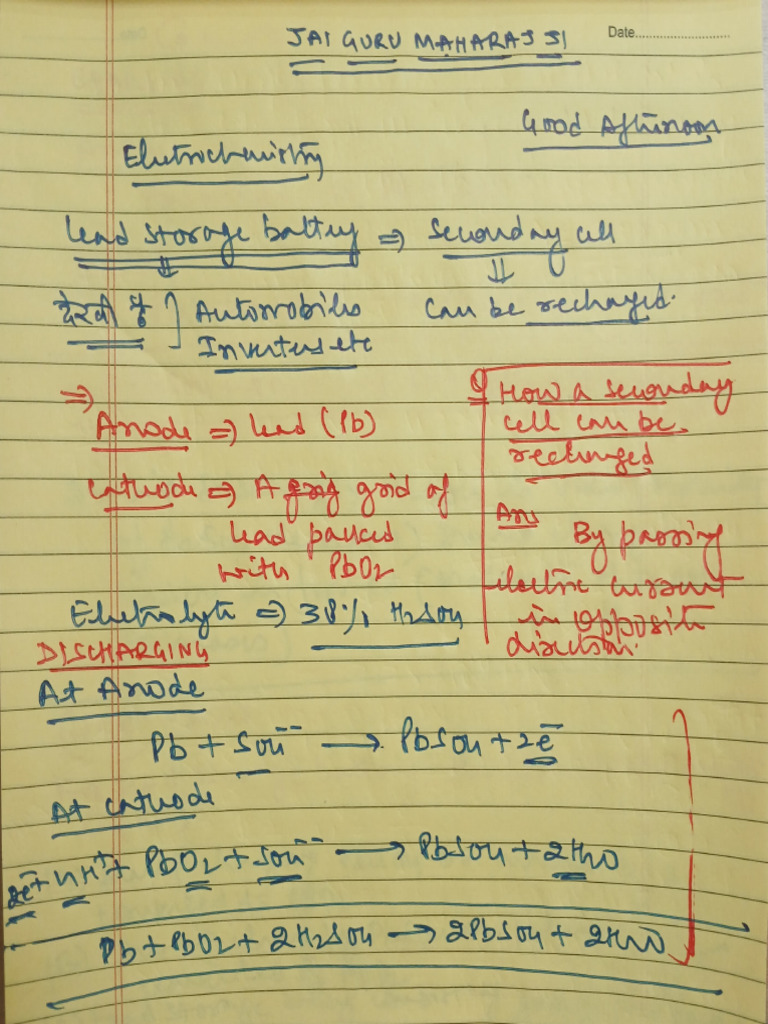 JAI GURU MAHARAJ JI
Date
Good Afternoon
Electrochemistry
Lead storage battery ⇒ Secondary cell
⇓ ⇓
देखते हैं } Automobiles Can be recharged.
Inverters etc
⇒
Anode ⇒ Lead (Pb)
Cathode ⇒ A grid of
lead packed
with PbO2
Electrolyte ⇒ 38% H2SO4
Q How a secondary
cell can be
recharged
Ans By passing
electric current
in opposite
direction.
DISCHARGING
At Anode
Pb + SO4-- → PbSO4 + 2e-
At cathode
2e- + 4H+ + PbO2 + SO4-- → PbSO4 + 2H2O
Pb + PbO2 + 2H2SO4 → 2PbSO4 + 2H2O